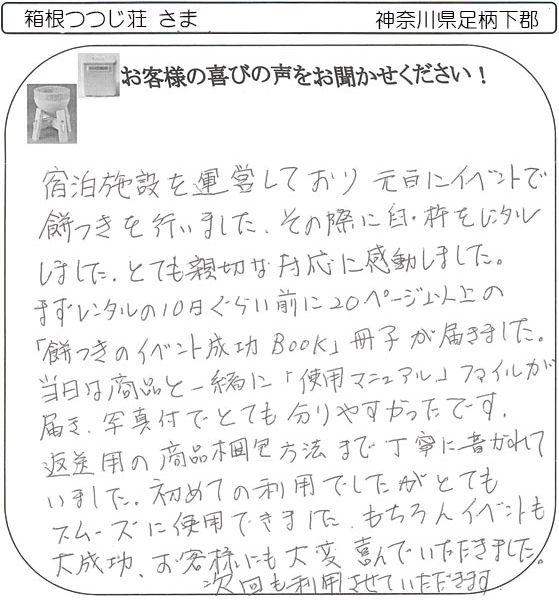 箱根つつじ荘 さま
神奈川県足柄下郡
お客様の喜びの声をお聞かせください！
宿泊施設を運営しており 元旦にイベントで
餅つきを行いました、その際に臼・杵をレンタル
しました、とても親切な対応に感動しました。
まずレンタルの10日ぐらい前に20ページ以上の
「餅つきのイベント成功BOOK」冊子が届きました。
当日は商品と一緒に「使用マニュアル」ファイルが
届き、写真付でとても分りやすかったです、
返送用の商品梱包方法まで丁寧に書かれて
いました、初めての利用でしたがとても
スムーズに使用できました、もちろんイベントも
大成功、お客様にも大変喜んでいただきました。
次回も利用させていただきます